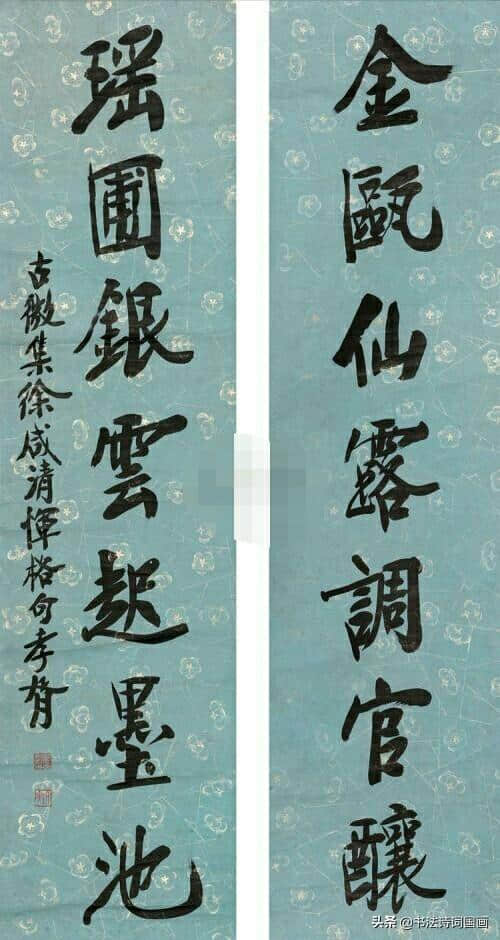 金甌仙露調官釀
瑤圃銀雲起墨池
古微集徐咸清惲格句孝臧
头条 @书法诗词国画